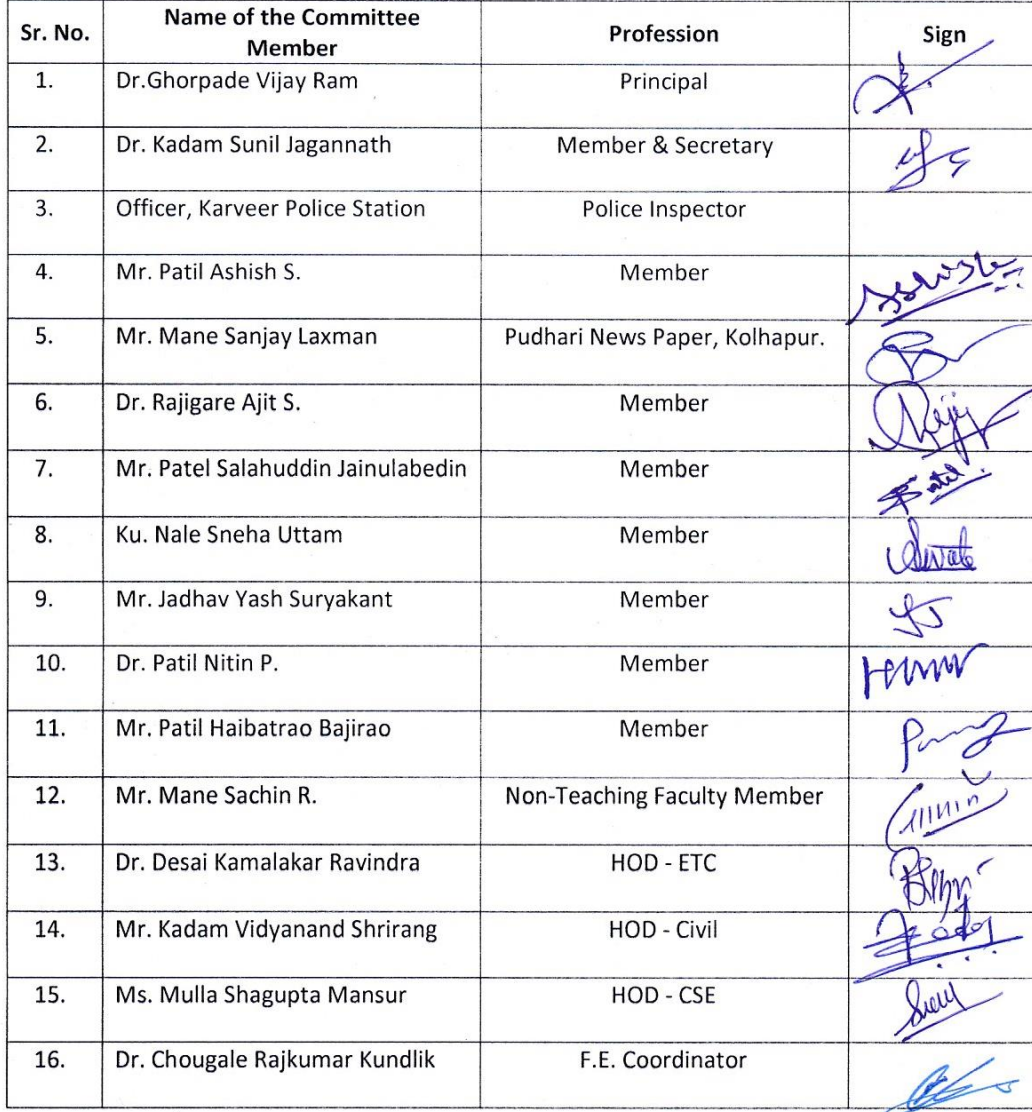 Sr. No. Name of the Committee Member Profession Sign
1. Dr.Ghorpade Vijay Ram Principal
2. Dr. Kadam Sunil Jagannath Member & Secretary
3. Officer, Karveer Police Station Police Inspector
4. Mr. Patil Ashish S. Member
5. Mr. Mane Sanjay Laxman Pudhari News Paper, Kolhapur.
6. Dr. Rajigare Ajit S. Member
7. Mr. Patel Salahuddin Jainulabedin Member
8. Ku. Nale Sneha Uttam Member
9. Mr. Jadhav Yash Suryakant Member
10. Dr. Patil Nitin P. Member
11. Mr. Patil Haibatrao Bajirao Member
12. Mr. Mane Sachin R. Non-Teaching Faculty Member
13. Dr. Desai Kamalakar Ravindra HOD - ETC
14. Mr. Kadam Vidyanand Shrirang HOD - Civil
15. Ms. Mulla Shagupta Mansur HOD - CSE
16. Dr. Chougale Rajkumar Kundlik F.E. Coordinator